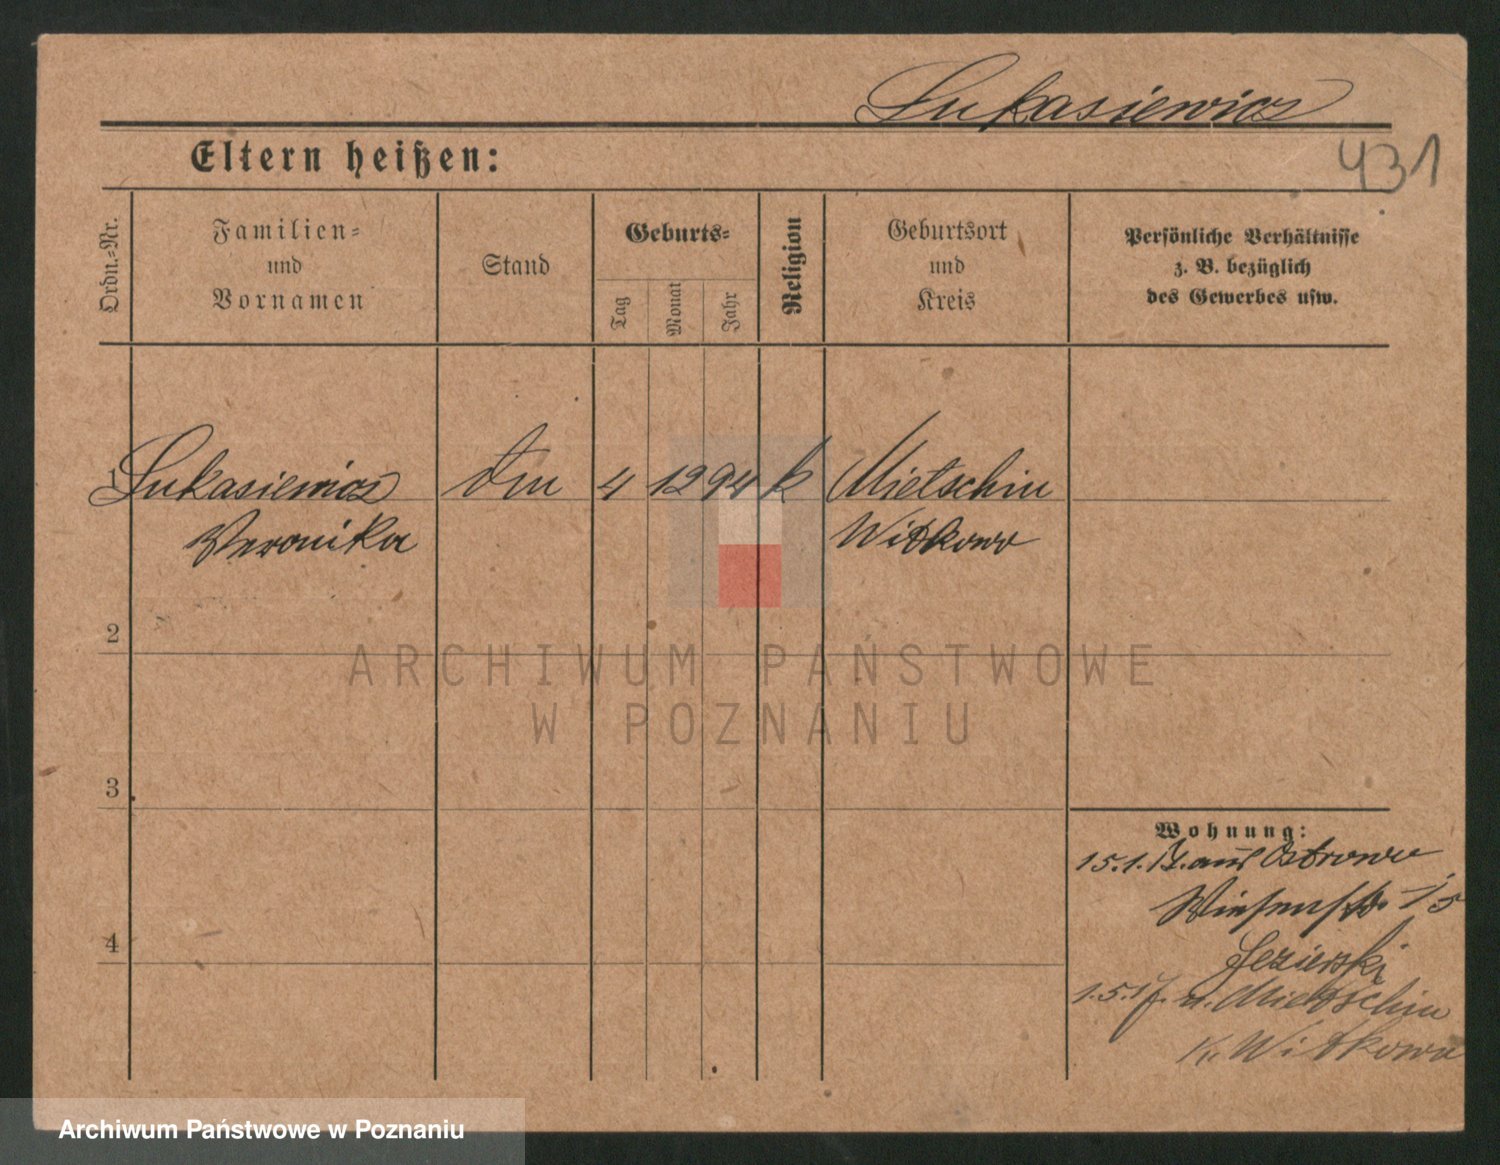 Lukasiewicz
431
Eltern heißen:
Ordn.-Nr.
Familien-
und
Vornamen
Stand
Geburts-
Tag
Monat
Jahr
Religion
Geburtsort
und
Kreis
Persönliche Verhältnisse
z. B. bezüglich
des Gewerbes usw.
1 Lukasiewicz
Veronika
4 12 94 k Mietschin
Witkowo
2
3
4
Wohnung:
15.1.17. aus Ostrowo
Wiesenstr. 15
Jezierski
1.5.17. n. Mietschin
Kr. Witkowo
ARCHIWUM PAŃSTWOWE
W POZNANIU
Archiwum Państwowe w Poznaniu